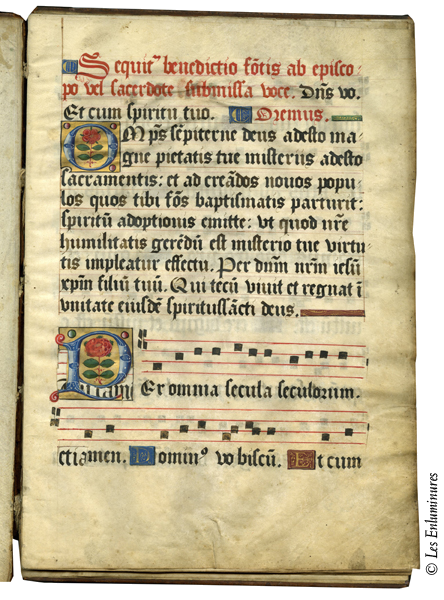 Sequit᷑ benedictio fōtis ab episco-
po vel sacerdote submissa voce. Dn̄s vo.
Et cum spiritu tuo. Oremus.
OMp̄s sēpiterne deus adesto ma-
gne pietatis tue misteriis adesto
sacramentis: et ad creādos nouos popu
los quos tibi fōs baptismatis parturit:
spiritū adoptionis emitte: vt quod nr̄e
humilitatis gerēdū est misterio tue virtu-
tis impleatur effectu. Per dn̄m nr̄m iesū
xp̄m filiū tuū. Qui tecū viuit et regnat ī
vnitate eiusdē spiritussācti deus.
PEr omnia secula seculorum.
etiamen. Dominꝰ vobiscū. Et cum
© Les Enluminures